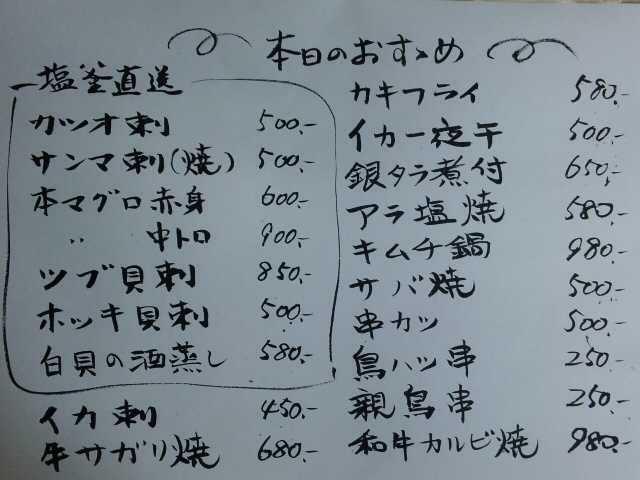 本日のおすゝめ
塩釜直送
カツオ刺 500.-
サンマ刺(焼) 500.-
本マグロ赤身 600.-
〃 中トロ 900.-
ツブ貝刺 850.-
ホッキ貝刺 500.-
白貝の酒蒸し 580.-
イカ刺 450.-
牛サガリ焼 680.-
カキフライ 580.-
イカ一夜干 500.-
銀タラ煮付 650.-
アラ塩焼 580.-
キムチ鍋 980.-
サバ焼 500.-
串カツ 500.-
鳥ハツ串 250.-
親鳥串 250.-
和牛カルビ焼 980.-